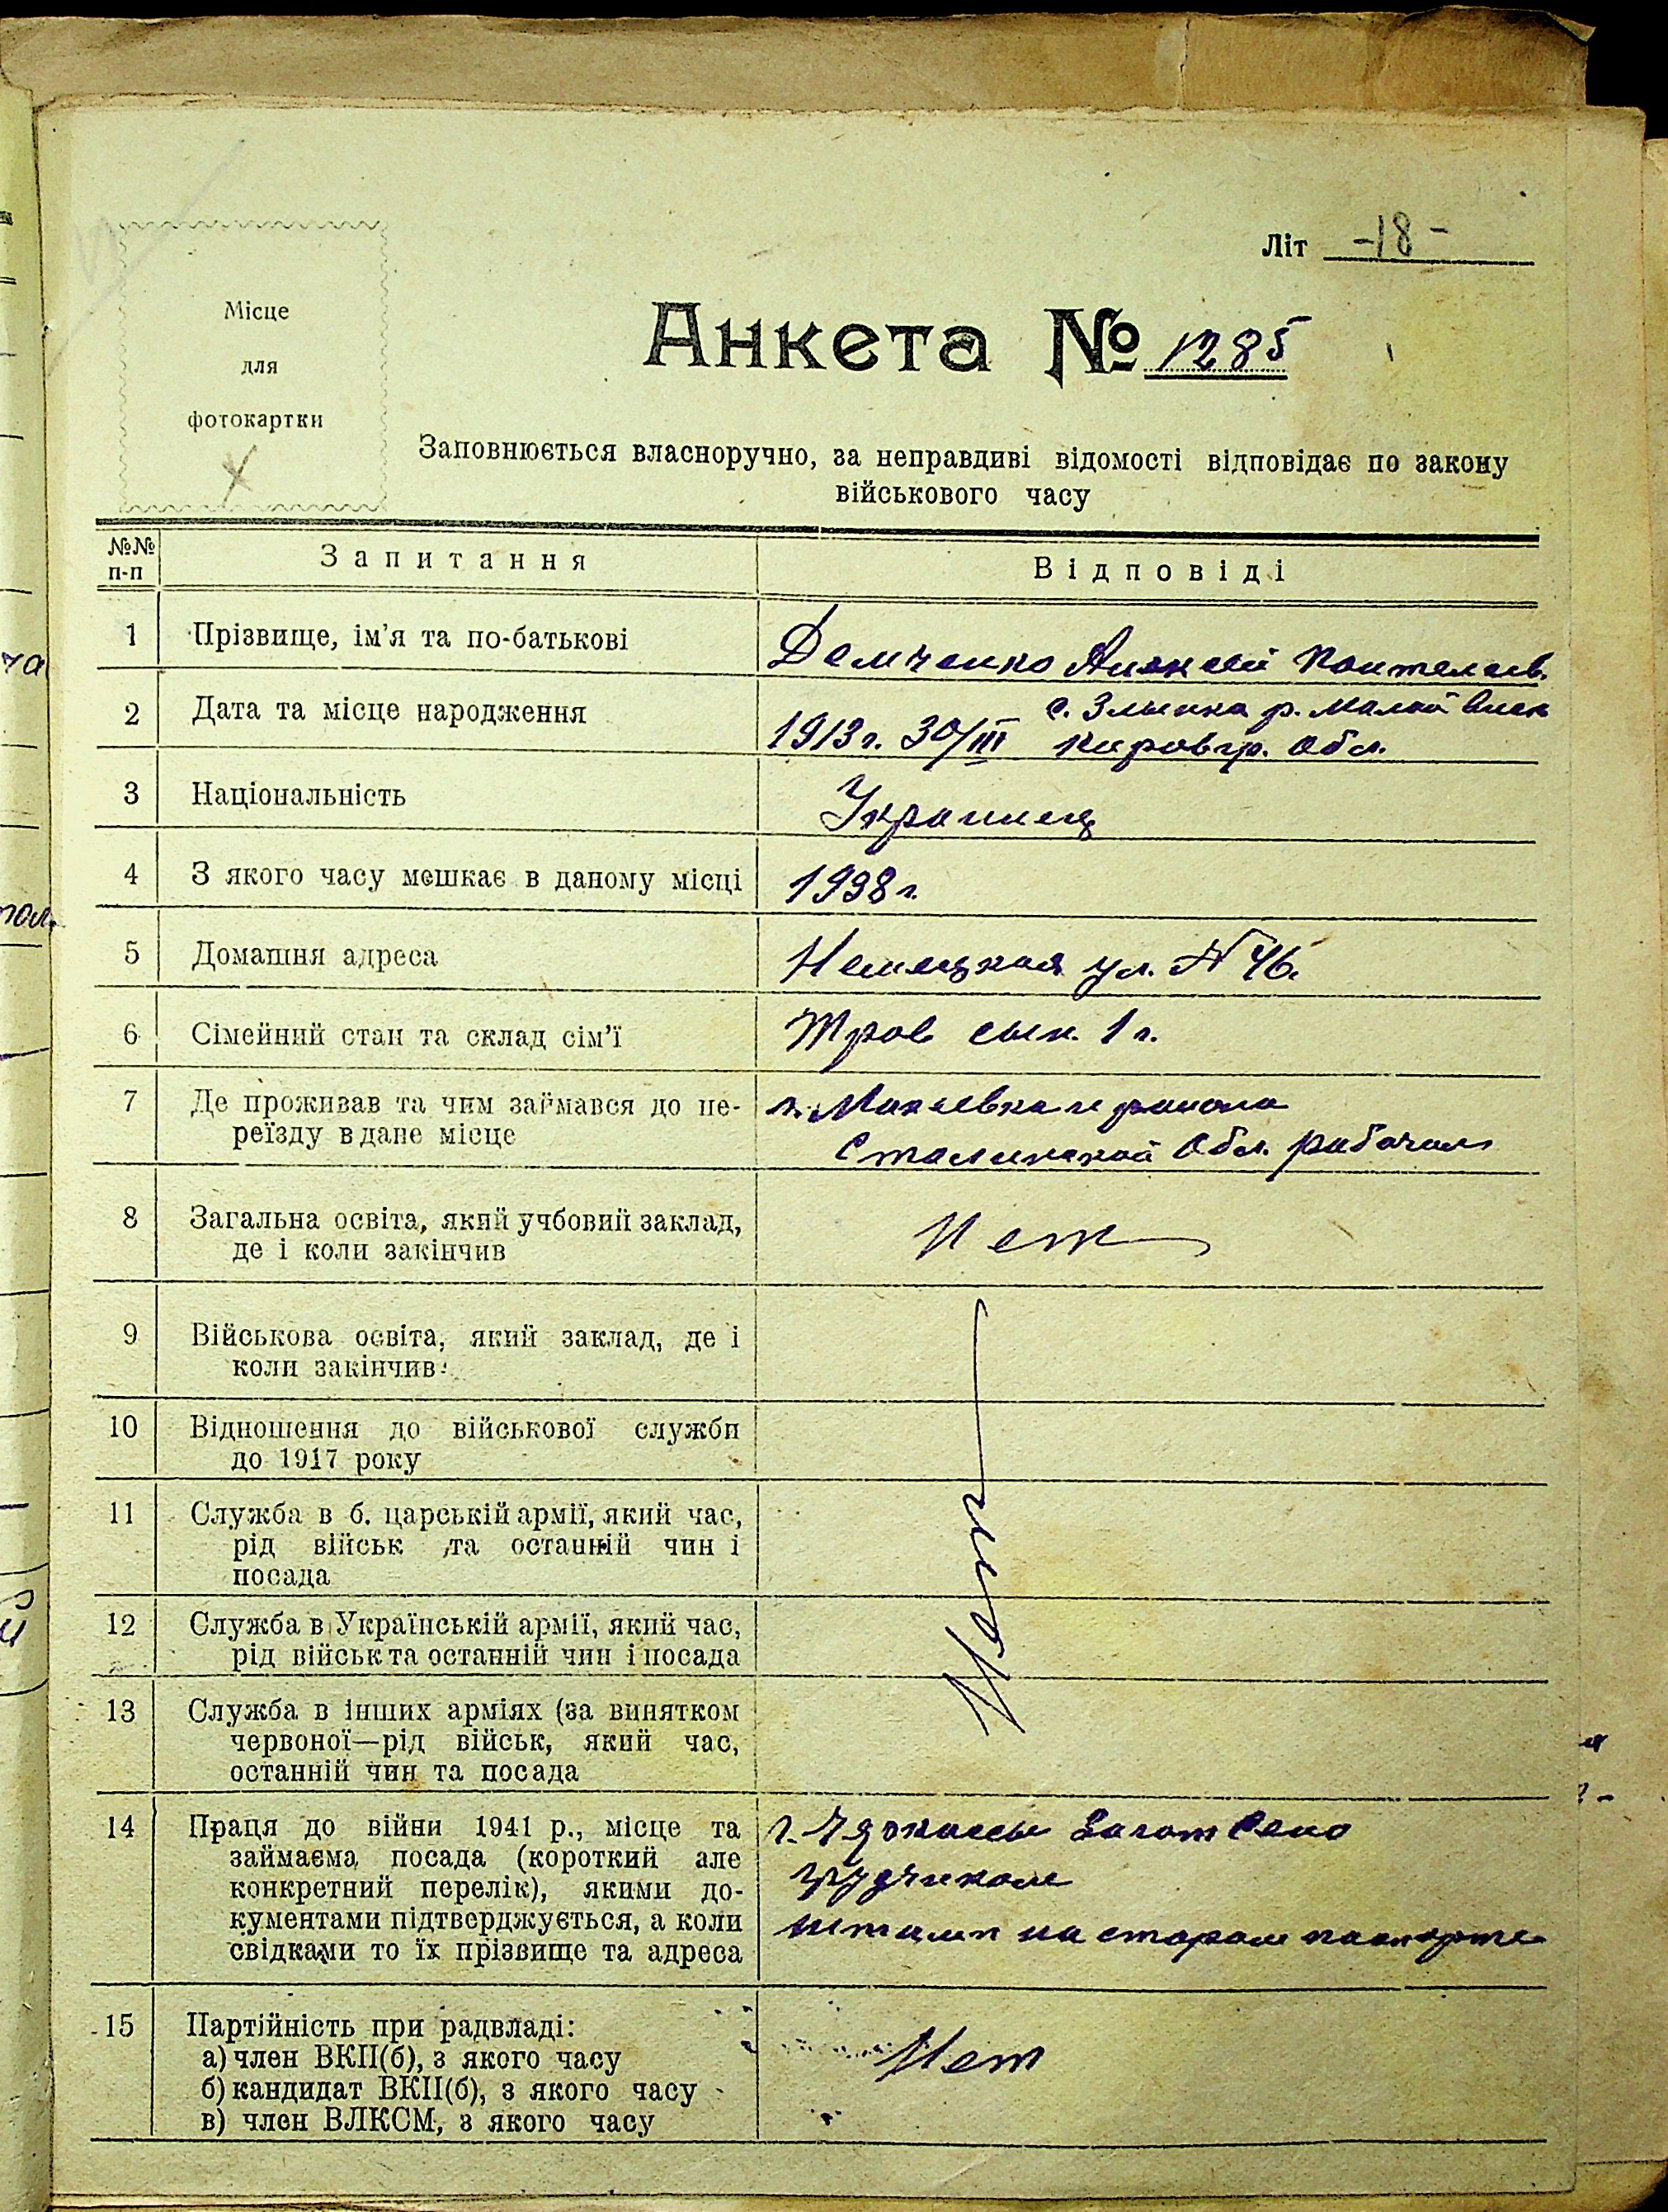 Літ -18-
Місце
для
фотокартки
Анкета № 1285
Заповнюється власноручно, за неправдиві відомості відповідає по закону
військового часу
№№ п-п Запитання Відповіді
1 Прізвище, ім'я та по-батькові Демченко Алексей Пантелеев.
2 Дата та місце народження 1913 г. 30/III с. Злынка р. Малой Виск
Кировгр. Обл.
3 Національність Украинец
4 З якого часу мешкає в даному місці 1938 г.
5 Домашня адреса Немецкая ул. № 46.
6 Сімейний стан та склад сім'ї сын. 1 г.
7 Де проживав та чим займався до пе-
реїзду в дане місце г. Макеевка
Сталинской Обл. рабочим
8 Загальна освіта, який учбовий заклад,
де і коли закінчив Нет
9 Військова освіта, який заклад, де і
коли закінчив
10 Відношення до військової служби
до 1917 року
11 Служба в б. царській армії, який час,
рід військ та останній чин і
посада
12 Служба в Українській армії, який час,
рід військ та останній чин і посада
13 Служба в інших арміях (за винятком
червоної—рід військ, який час,
останній чин та посада
Нет
14 Праця до війни 1941 р., місце та
займаєма посада (короткий але
конкретний перелік), якими до-
кументами підтверджується, а коли
свідками то їх прізвище та адреса
г. Заготсено
грузчиком
штамп на старом паспорте
15 Партійність при радвладі:
а) член ВКП(б), з якого часу
б) кандидат ВКП(б), з якого часу
в) член ВЛКСМ, з якого часу
Нет